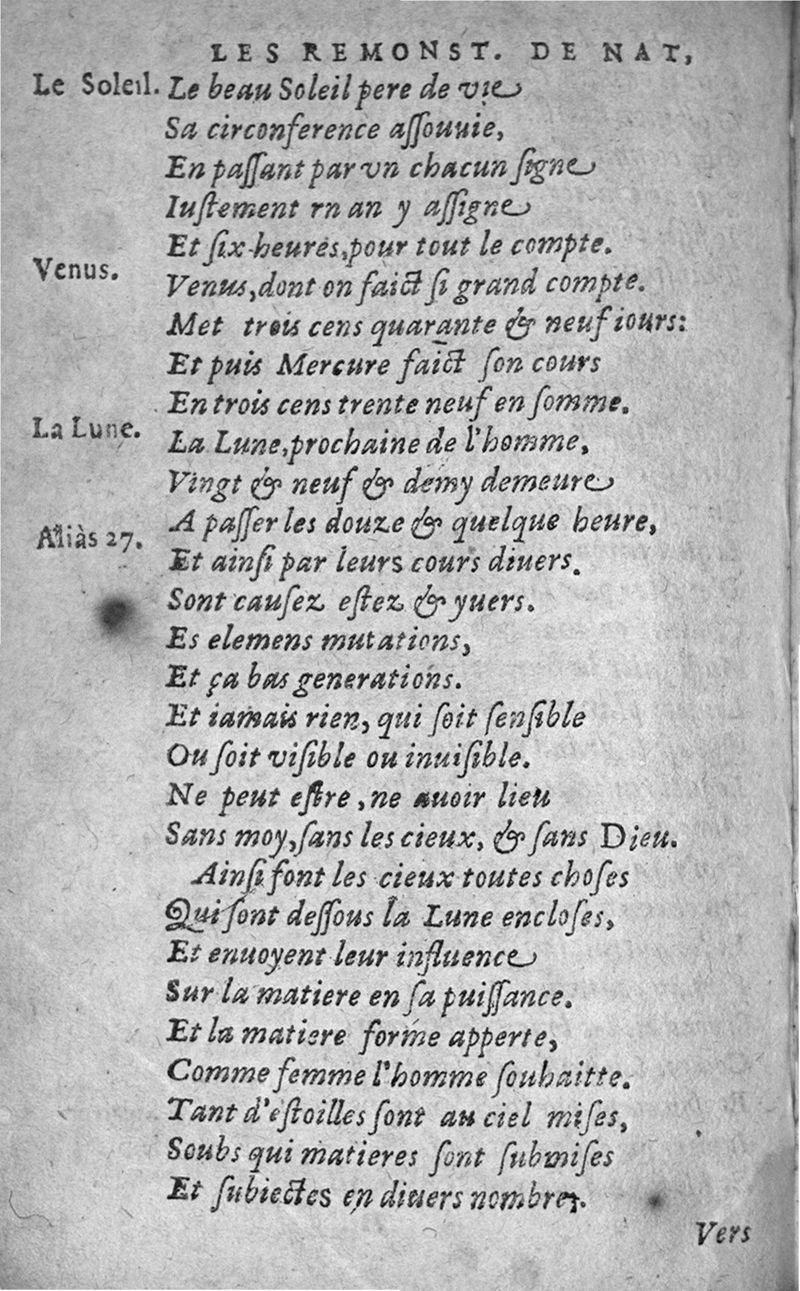 LES REMONST. DE NAT,
Le Soleil. Le beau Soleil pere de vie
Sa circonference aſſouuie,
En paſſant par vn chacun ſigne
Iuſtement rn an y aſſigne
Et ſix heures, pour tout le compte.
Venus. Venus, dont on faict ſi grand compte.
Met trois cens quarante & neuf iours:
Et puis Mercure faict ſon cours
En trois cens trente neuf en ſomme.
La Lune. La Lune, prochaine de l'homme,
Vingt & neuf & demy demeure
Aliàs 27. A paſſer les douze & quelque heure,
Et ainſi par leurs cours diuers.
Sont cauſez eſtez & yuers.
Es elemens mutations,
Et ça bas generations.
Et iamais rien, qui ſoit ſenſible
Ou ſoit viſible ou inuiſible.
Ne peut eſtre, ne auoir lieu
Sans moy, ſans les cieux, & ſans Dieu.
Ainſi font les cieux toutes choſes
Qui ſont deſſous la Lune encloſes,
Et enuoyent leur influence
Sur la matiere en ſa puiſſance.
Et la matiere forme apperte,
Comme femme l'homme ſouhaitte.
Tant d'eſtoilles ſont au ciel miſes,
Soubs qui matieres ſont ſubmiſes
Et ſubiectes en diuers nombres.
Vers